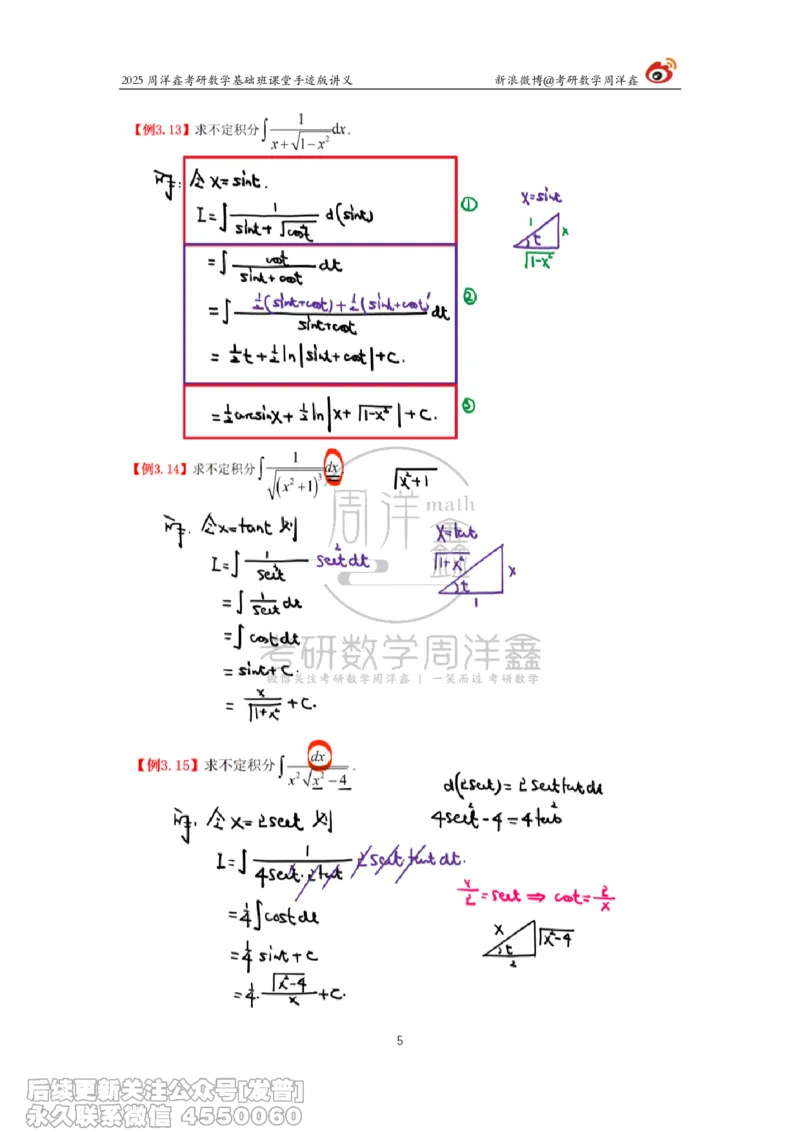 2025 周洋鑫考研数学基础班课堂手迹版讲义 新浪微博@考研数学周洋鑫
【例3.13】求不定积分∫ 1/(x+√(1-x²)) dx.
解: 令 x=sint.
I=∫ 1/(sint+√cos²t) d(sint)
①
x=sint
1
x
t
√(1-x²)
=∫ cost/(sint+cost) dt
=∫ (½(sint+cost)+½(sint+cost)')/(sint+cost) dt
②
=½t+½ln|sint+cost|+C.
=½arcsinx+½ln|x+√(1-x²)|+C.
③
【例3.14】求不定积分∫ 1/√(x²+1)³ dx.
√(x²+1)
解. 令x=tant 则
I=∫ 1/sec³t sec²t dt
x=tant
√(1+x²)
x
t
1
=∫ 1/sect dt
=∫ cost dt
=sint+C.
=x/√(1+x²)+C.
周洋鑫math
考研数学周洋鑫
微信关注考研数学周洋鑫 | 一笑而过 考研数学
【例3.15】求不定积分∫ dx/(x²√(x²-4)).
d(2sect)=2sect tant dt
4sec²t-4=4tan²t
解. 令 x=2sect 则
I=∫ 1/(4sec²t·2tant) 2sect·tant dt.
x/2=sect ⇒ cost=2/x
=¼∫cost dt
x
√(x²-4)
t
2
=¼ sint+C
=¼·√(x²-4)/x+C.
5
后续更新关注公众号[发普]
永久联系微信 4550060